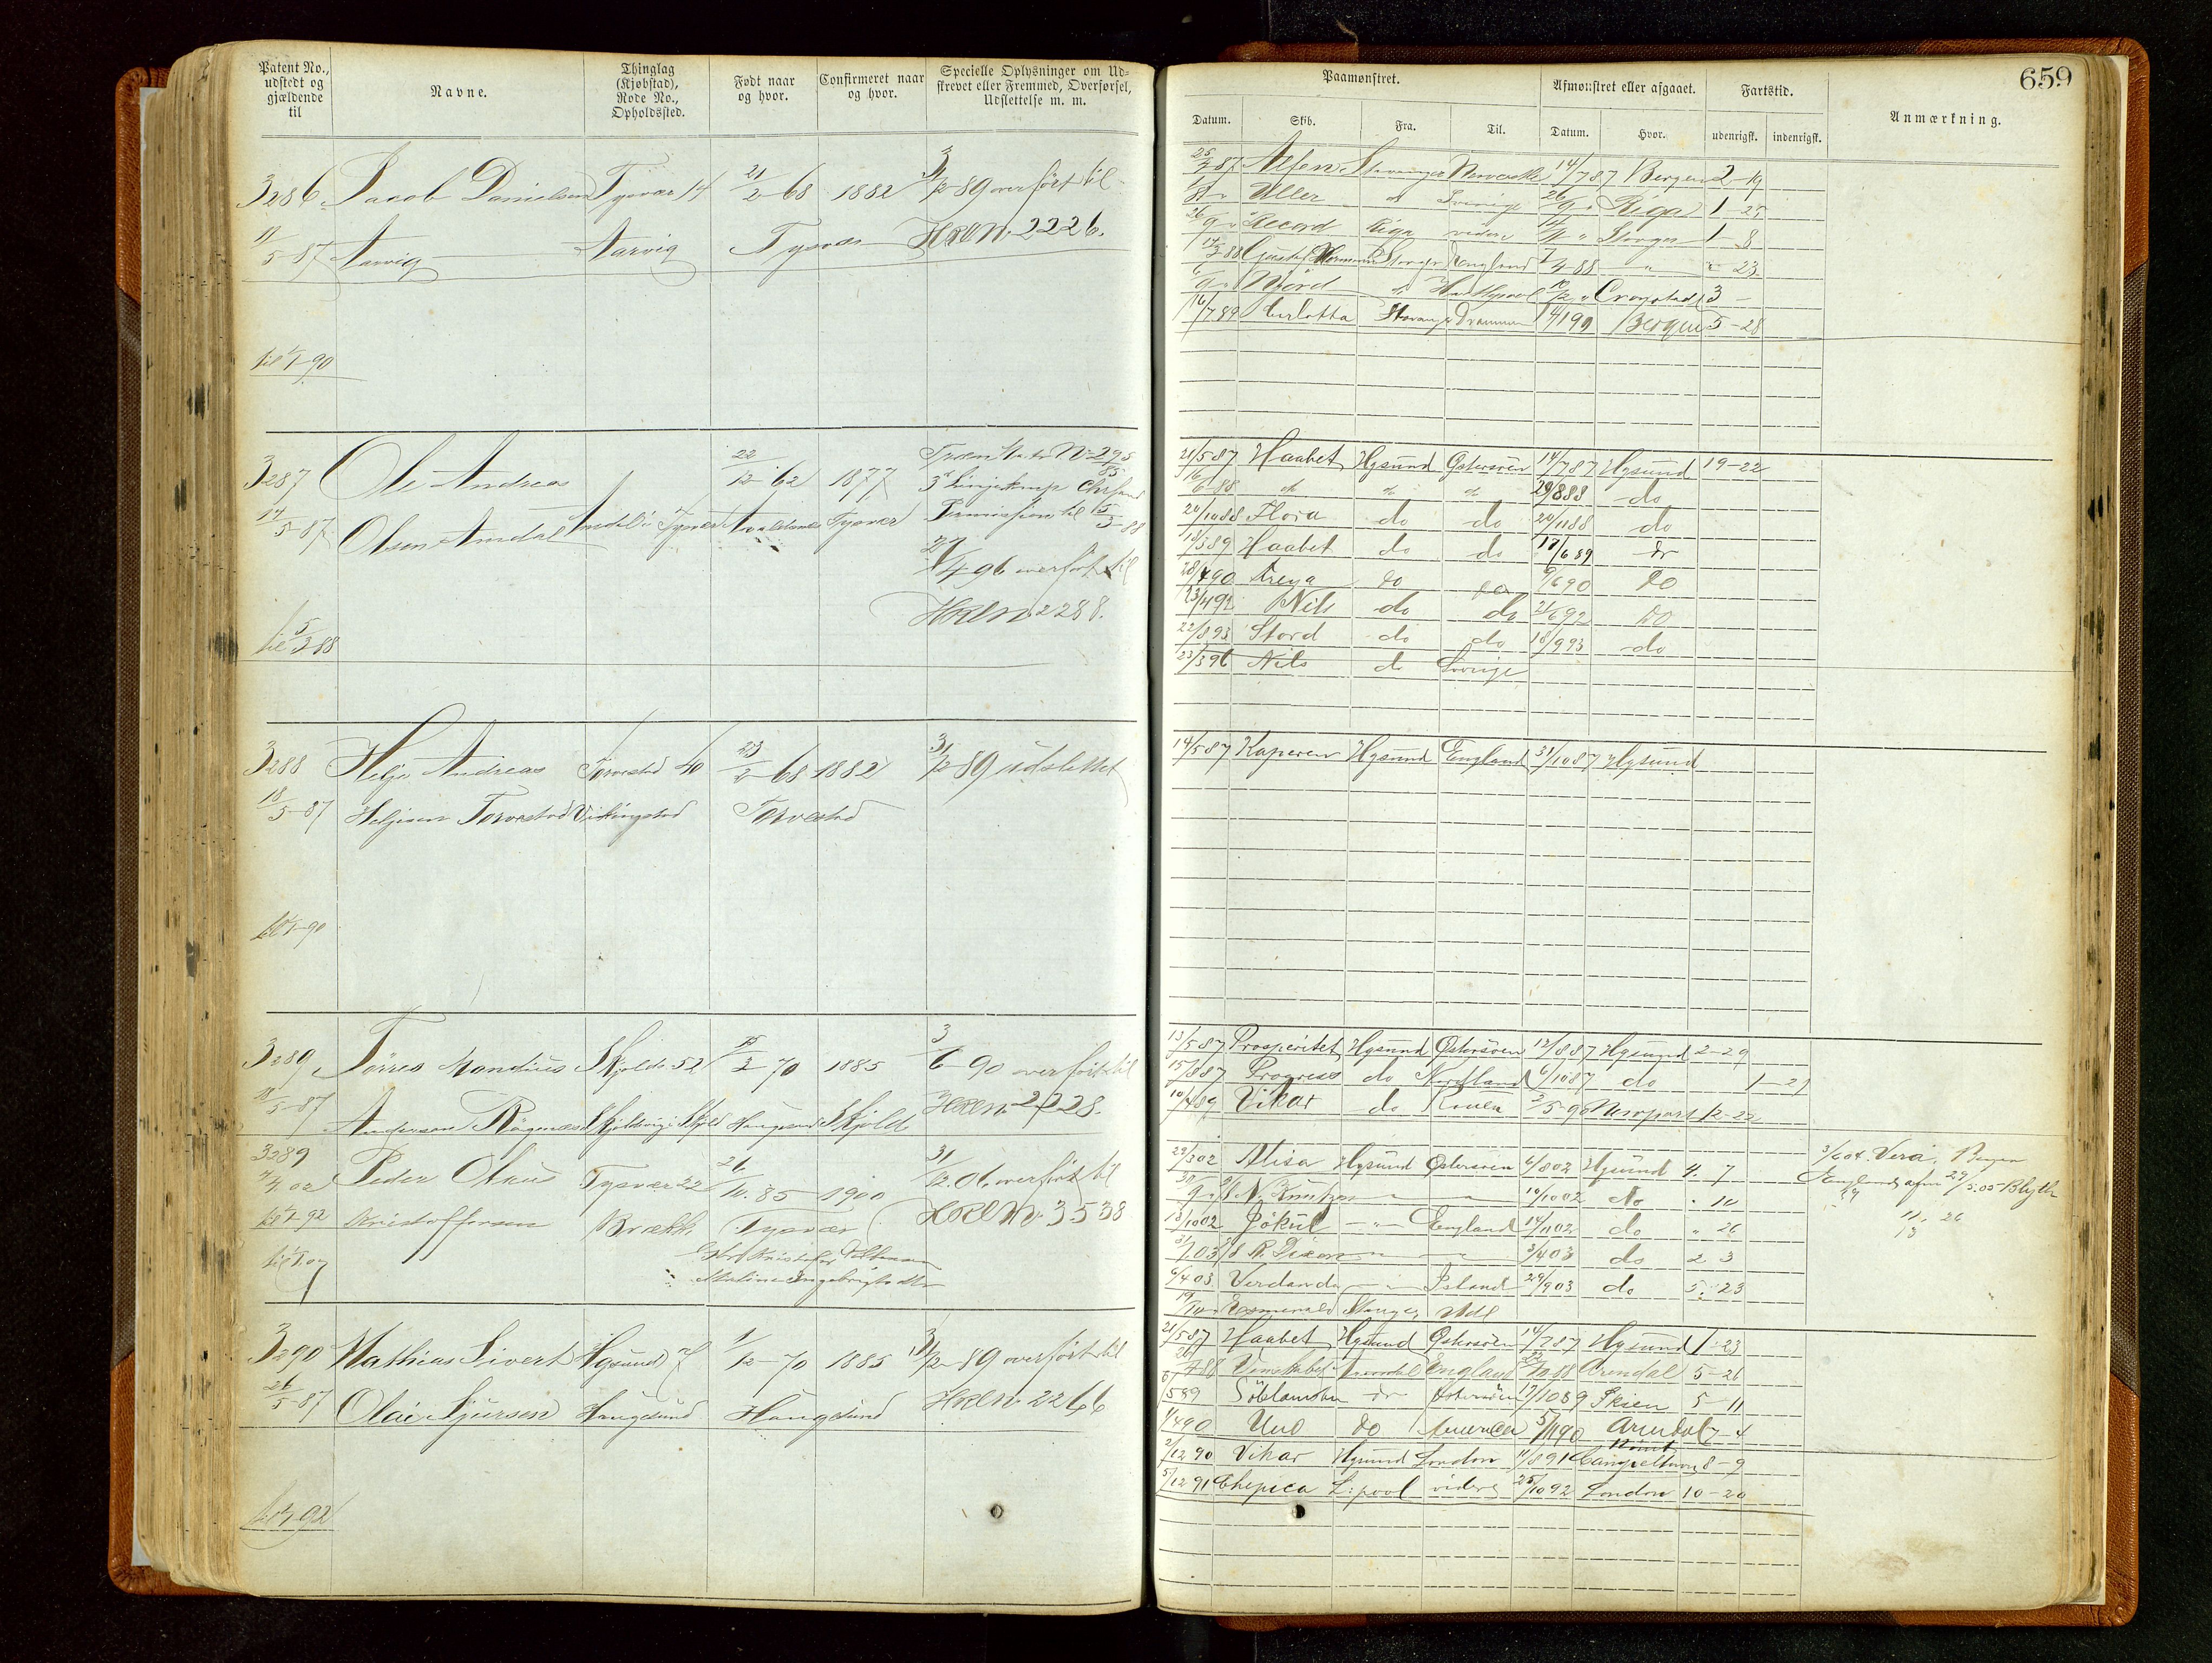 Patent No., udstedt og gjældende til
Navne.
Thinglag (Kjøbstad), Rode No., Opholdssted.
Født naar og hvor.
Confirmeret naar og hvor.
Specielle Oplysninger om Udskrevet eller Fremmed, Overførsel, Udslettelse m. m.
3286 Jacob Danielsen Tysvær 14 21/2-68 1882 31/12-89 overført til
11/5-87 Aarvig Aarvig Tysvær HRLN. 2226.
til 1/1-90
3287 Ole Andreas 22/12-62 1877
14/5-87 Olsen Amdal Amdal i Tysvær Avaldsnes Tysvær
Permission til 15/3-88
27/4-96 overført til
HRLN. 2288.
til 15/3-88
3288 Helge Andreas Torvestad 40 23/2-68 1882 31/12-89 udslettet
18/5-87 Helgesen Torvestad Vikingstad Torvestad
til 1/1-90
3289 Tørres Mandius Skjold 52 15/3-70 1885 3/6-90 overført til
18/5-87 Andersen Skjold Haugesund Skjold HRLN. 2228.
3289
7/4.02 Peder Olaus Tysvær 22 26/10.85 1900 31/12.06. overført til
til 1/1-92 Kristoffersen Brække Tysvær HRLN. 3538
til 1/1 07
3290 Mathias Sivert Hgsund 7 1/12-70 1885 31/12-89 overført til
26/5-87 Olai Sjursen Haugesund Haugesund HRLN. 2266
til 1/1-92
659
Paamønstret.
Afmønstret eller afgaaet.
Fartstid.
Anmærkning.
Datum. Skib. Fra. Til. Datum. Hvor. udenrigsk. indenrigsk.
Stavanger 14/7 87 Bergen 2-19
Uller do Sverige 26/9 " Riga 1-25
26/9 " Record Riga videre Stvgr 1-8
England 7/4-88 " " 23
Nord do Hartlepool 10/12 " 3-
16/7 89 Carlotta Stavanger Drammen 14/1 90 Bergen 5-28
21/5 87 Haabet Hgsund Østersøen 14/7 87 Hgsund 19-22
16/6-88 do do do 29/8 88 do
20/10 88 Flora do do 20/11 88 do
18/3 89 Haabet do do 17/6 89 do
28/4 90 Freya do do 9/6 90 do
23/4 92 Nils do do 21/6 92 do
22/8 93 Stord do do 18/9 93 do
23/3 96 Nils do Sverige
14/5 87 Kaperen Hgsund England 31/10 87 Hgsund
13/5 87 Prosperitet Hgsund Østersøen 12/8 87 Hgsund 2-29
15/8 87 Progress do Nordland 6/10 87 do 1-21
10/4 89 Vikar do 2/5-90 Newport 12-22
29/3 02 Alisa Hgsund Østersøen 6/8 02 Hgsund 4. 7
N. Knutzen " " 10/10 02 do " 10
13/10 02 Jökul " England 14/11 02 do " 26
R. Dixon " " 3/4 03 do 2 3
6/4 03 Verdande " Island 29/9 03 do 5. 23
19/10 " Esmerald Stvgr Udl
3/6 04. Vera, Bergen
England afm 29/5.05 Blyth
11. 26
13
21/5 87 Haabet Hgsund Østersøen 14/7 87 Hgsund 1-23
Arendal England Arendal 5-26
do Østersøen 17/10 89 Skien 5-11
4 90 Uno do America 5/11 90 Arendal 7-4
2/12 90 Vikar Hgsund London 11/8 91 rømt 8-9
5/12 91 Chepica L:pool videre 25/10 92 London 10-20